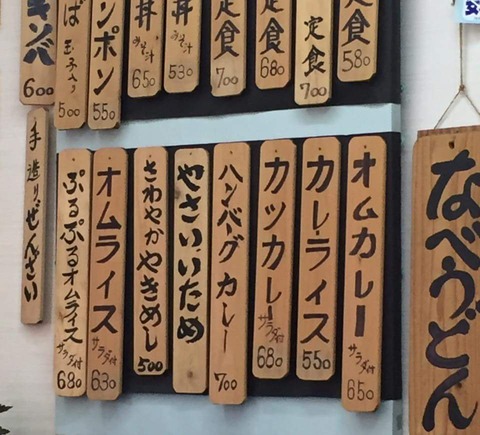 定食 580
定食 700
定食 680
定食 700
丼 みそ汁 530
丼 みそ汁 650
ンポン 550
ば 玉子入り 500
キンパ 600
オムカレー サラダ付 650
カレーライス 550
カツカレー サラダ付 680
ハンバーグカレー 700
やさいいため
さわやかやきめし 500
オムライス サラダ付 630
ぷるぷるオムライス サラダ付 680
手造りぜんざい
なべうどん